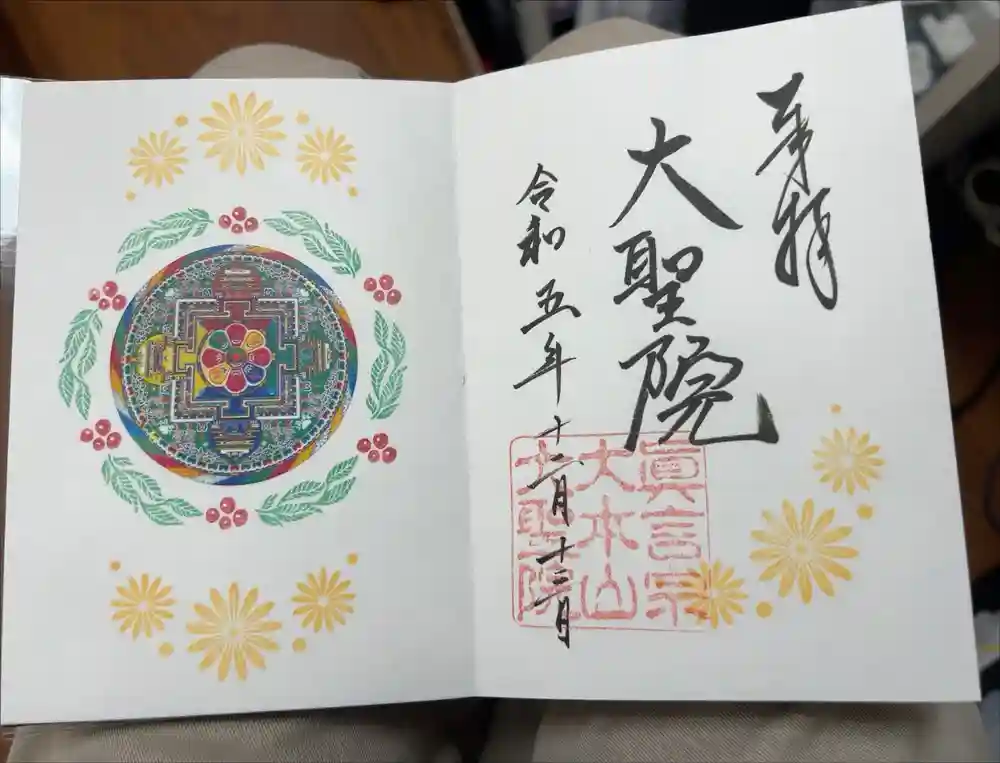 奉拝
大聖院
令和五年十二月十二日
眞言宗
大本山
大聖院